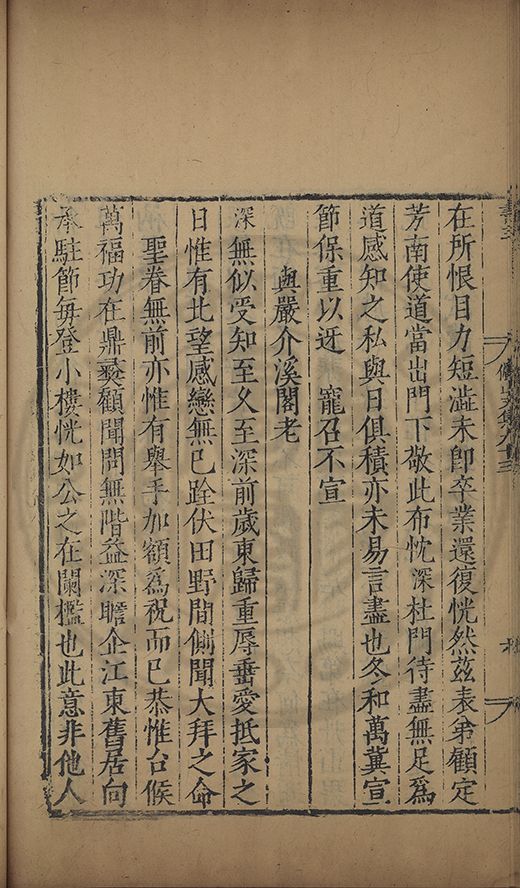 在所恨目力短澁未即卒業還復恍然茲表弟顧定
芳南使道當出門下敬此布忱深杜門待盡無足爲
道感知之私與日俱積亦未易言盡也冬和萬冀宣
節保重以迓 寵召不宣
與嚴介溪閣老
深無似受知至久至深前歲東歸重辱垂愛抵家之
日惟有北望感戀無已跧伏田野間側聞大拜之命
聖眷無前亦惟有舉手加額爲祝而已恭惟台候
萬福功在鼎彝顧聞問無階益深瞻企江東舊居向
承駐節每登小樓恍如公之在闌檻也此意非他人